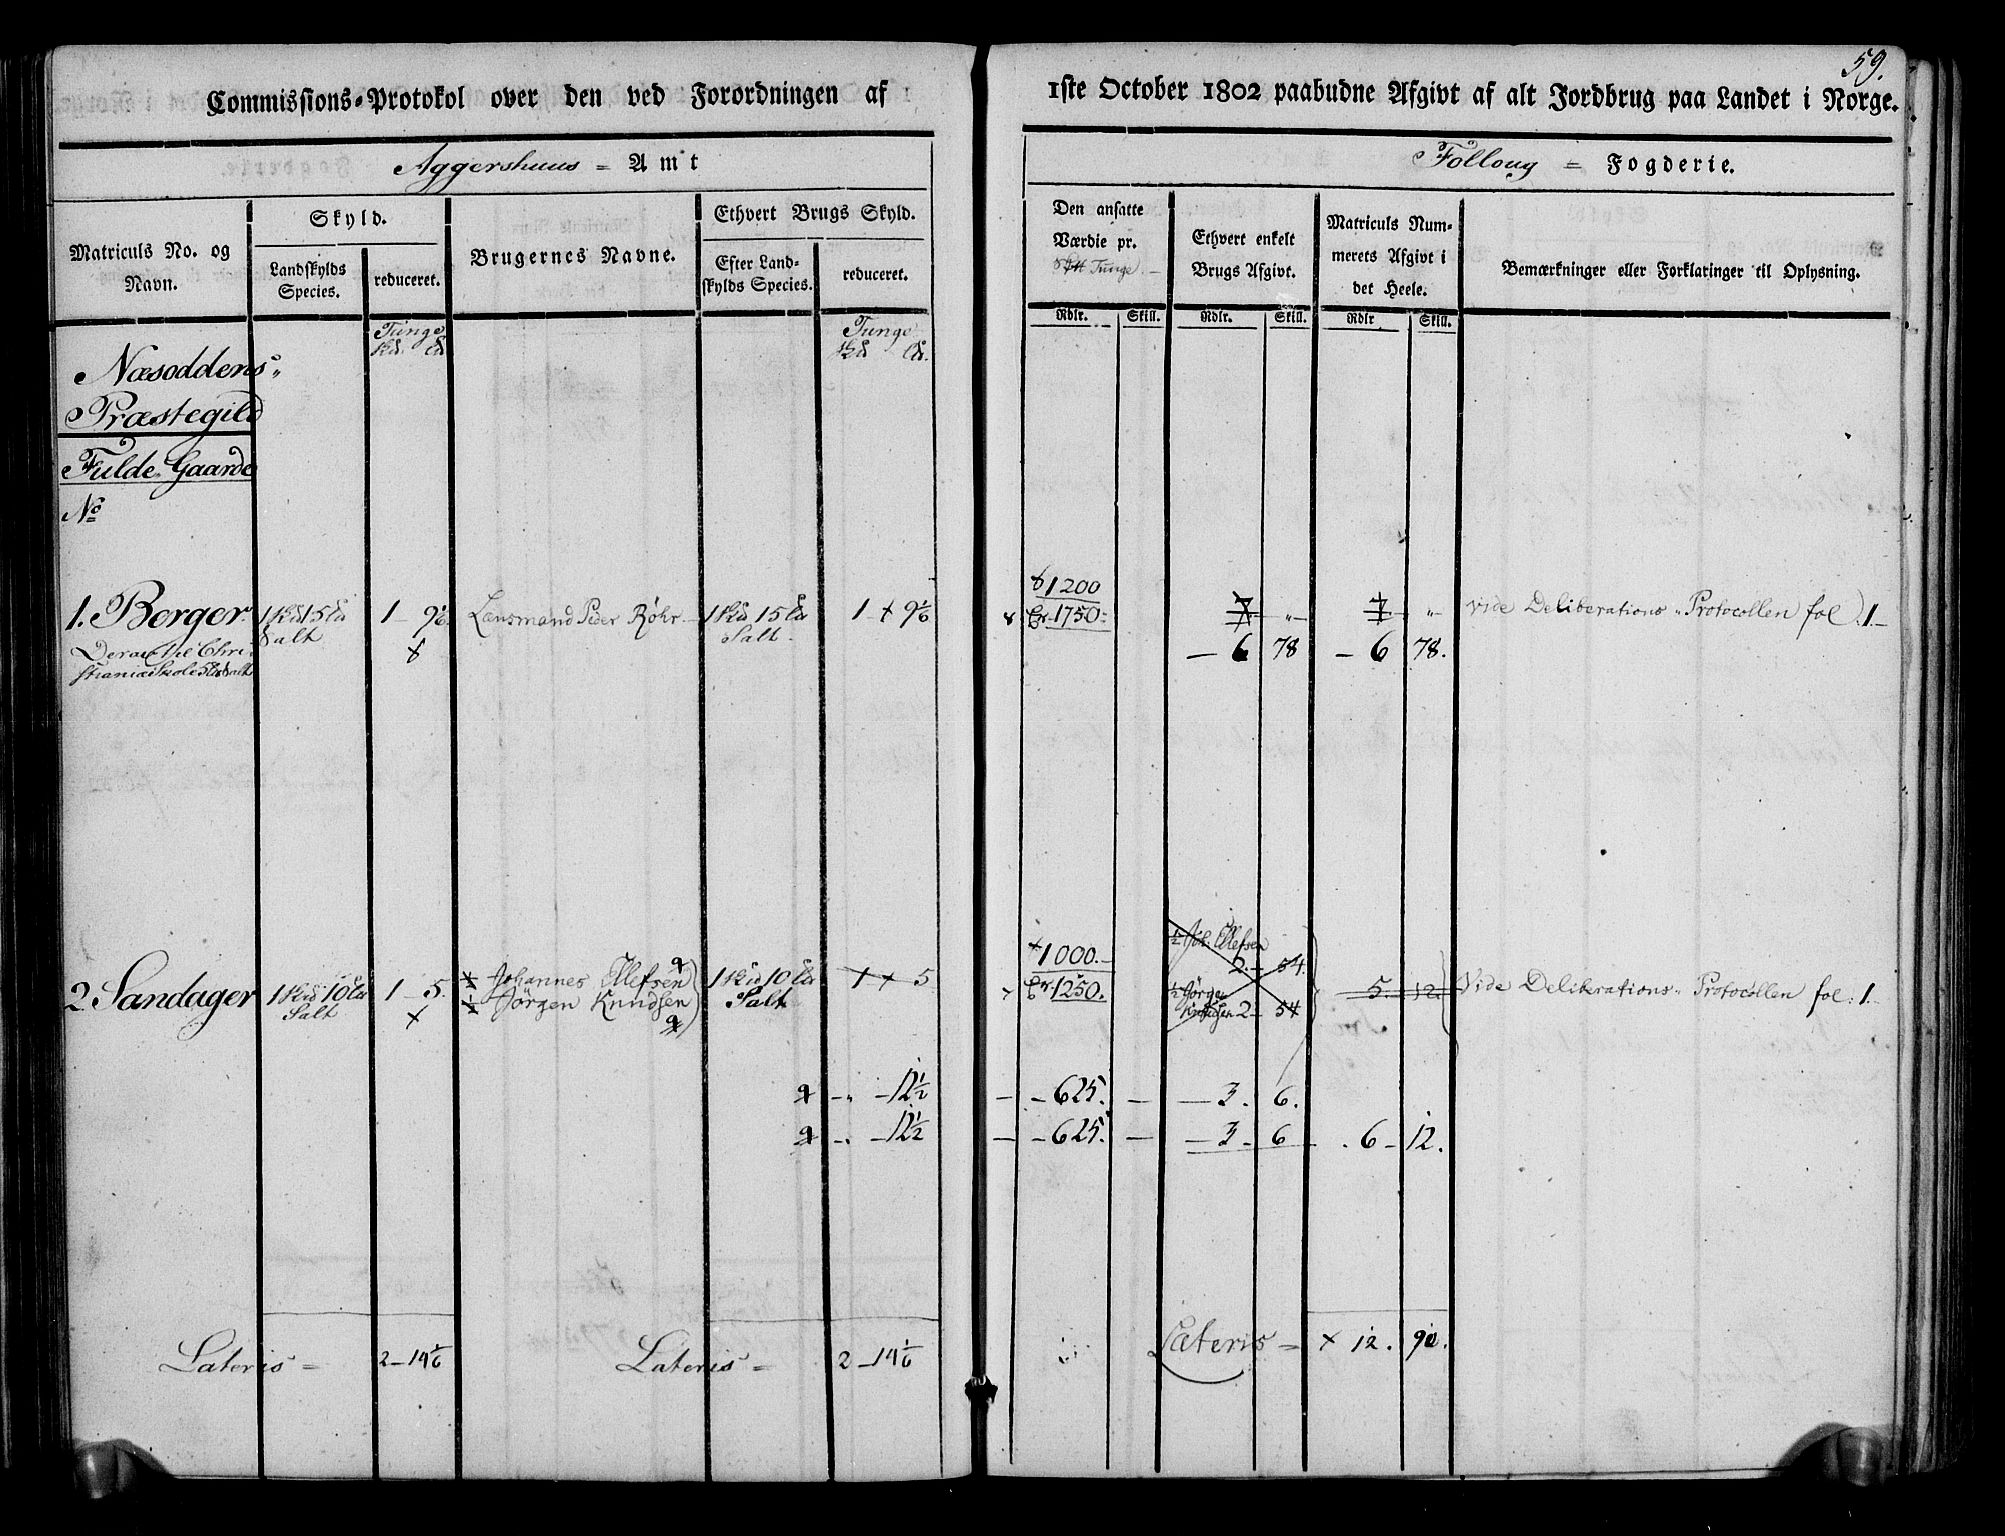 59.
Commissions-Protokol over den ved Forordningen af 1ste October 1802 paabudne Afgivt af alt Jordbrug paa Landet i Norge.
Aggershuus = Amt
Folloug = Fogderie.
Matriculs No. og Navn.
Skyld.
Landskylds Species.
reduceret.
Brugernes Navne.
Ethvert Brugs Skyld.
Efter Landskylds Species.
reduceret.
Den ansatte Værdie pr. Tunge.
Ethvert enkelt Brugs Afgivt.
Matriculs Nummerets Afgivt i det Heele.
Bemærkninger eller Forklaringer til Oplysning.
Rdlr. Skill. Rdlr. Skill. Rdlr Skill.
Tunge Tunge
Næsoddens
Præstegild
Fulde Gaarde
No
1200
1. Berger 1 15 Salt 1 - 9 1/6 Lensmand Peder Röhr 1 15 Salt 1 + 9 1/6 1750 7 " 7 " Vide Deliberations Protocollen fol. 1.
Deraf til Christiania Skole
6 78 6 78.
1000.
1/2 Joh. Ellefsen 2. 54.
2. Sandager 1 10 Salt 1 - 5. Johannes Ellefsen 1 10 Salt 1 + 5 1250. 5. 12. Vide Deliberations Protocollen fol. 1.
Jörgen Knudsen
1/2 Jörgen Knudsen 2 - 54
" - 12 1/2 - 625. - 3. 6.
" - 12 1/2 - 625. - 3 - 6 6 - 12.
Lateris = 2 - 14 1/6 Lateris = 2 - 14 1/6 Lateris = × 12. 90.